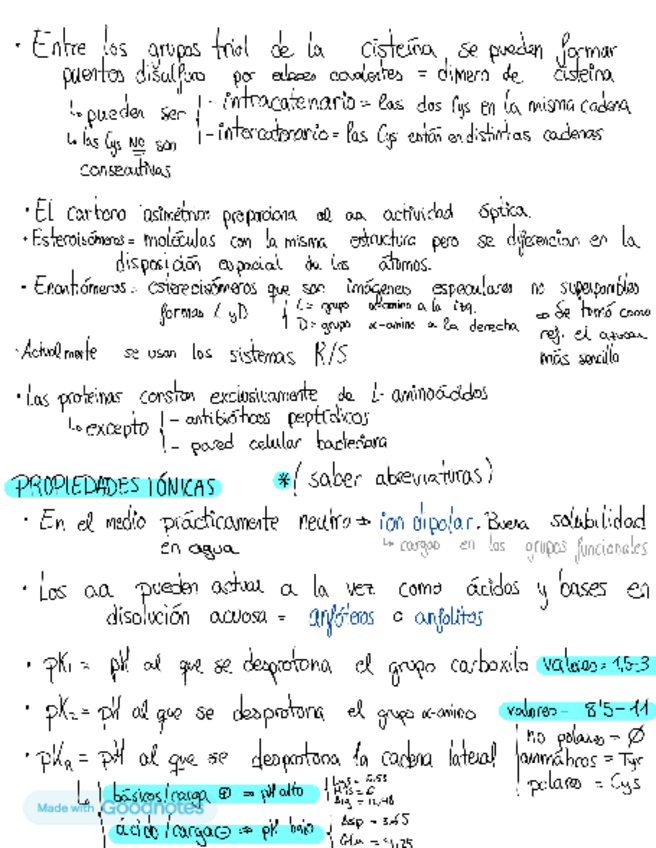 · Entre los grupos triol de la cisteína se pueden formar
puentes disulfuro por enlaces covalentes = dímero de cisteína
↳ pueden ser - intracatenario = las dos Cys en la misma cadena
↳ las Cys NO son - intercatenario = las Cys están en distintas cadenas
consecutivas
· El carbono asimétrico proporciona al aa actividad óptica.
· Esteroisómeros = moléculas con la misma estructura pero se diferencian en la
disposición espacial de los átomos.
· Enantiómeros = estereoisómeros que son imágenes especulares no superponibles
formas L y D L = grupo α-amino a la izq. ⇒ Se tomó como
D = grupo α-amino a la derecha ref. el azúcar
· Actualmente se usan los sistemas R/S más sencillo
· Las proteínas constan exclusivamente de L-aminoácidos
↳ excepto - antibióticos peptídicos
- pared celular bacteriana
PROPIEDADES IÓNICAS * (saber abreviaturas)
· En el medio prácticamente neutro → ion dipolar. Buena solubilidad
en agua ↳ cargas en los grupos funcionales
· Los aa pueden actuar a la vez como ácidos y bases en
disolución acuosa = anfóteros o anfolitos
· pK₁ = pH al que se desprotona el grupo carboxilo valores = 1,5-3
· pK₂ = pH al que se desprotona el grupo α-amino valores = 8'5-11
· pKR = pH al que se desprotona la cadena lateral no polares = Ø
aromáticos = Tyr
polares = Cys
↳ básicos/carga ⊕ ⇒ pH alto
ácido/carga ⊖ ⇒ pK bajo Asp = 3,65
Glu = 4,25
Made with Goodnotes